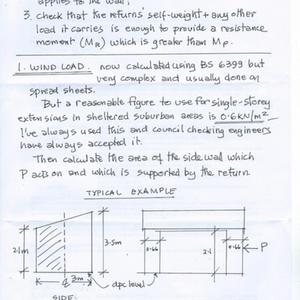 applies to the wall,
3. check that the returns' self-weight + any other
load it carries is enough to provide a resistance
moment (MR) which is greater than Mp.
1. WIND LOAD. now calculated using BS 6399 but
very complex and usually done on
spread sheets.
But a reasonable figure to use for single-storey
extensions in sheltered suburban areas is 0.6KN/m².
I've always used this and council checking engineers
have always accepted it.
Then calculate the area of the side wall which
P acts on and which is supported by the return.
TYPICAL EXAMPLE
2.1m
3.5m
3m
dpc level
0.66
2.1
0.66
P
SIDE